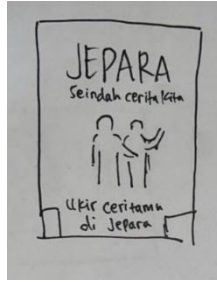 JEPARA
Seindah cerita kita
Ukir ceritamu
di Jepara